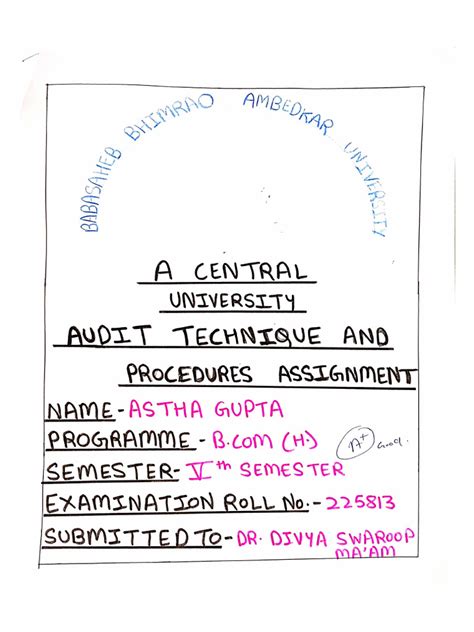 BABASAHEB BHIMRAO AMBEDKAR UNIVERSITY
A CENTRAL
UNIVERSITY
AUDIT TECHNIQUE AND
PROCEDURES ASSIGNMENT
NAME - ASTHA GUPTA
PROGRAMME - B.COM (H.)
A+ Good.
SEMESTER - Vth SEMESTER
EXAMINATION ROLL No. - 225813
SUBMITTED TO - DR. DIVYA SWAROOP
MA'AM